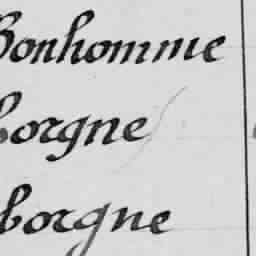 Bonhomme
borgne
borgne